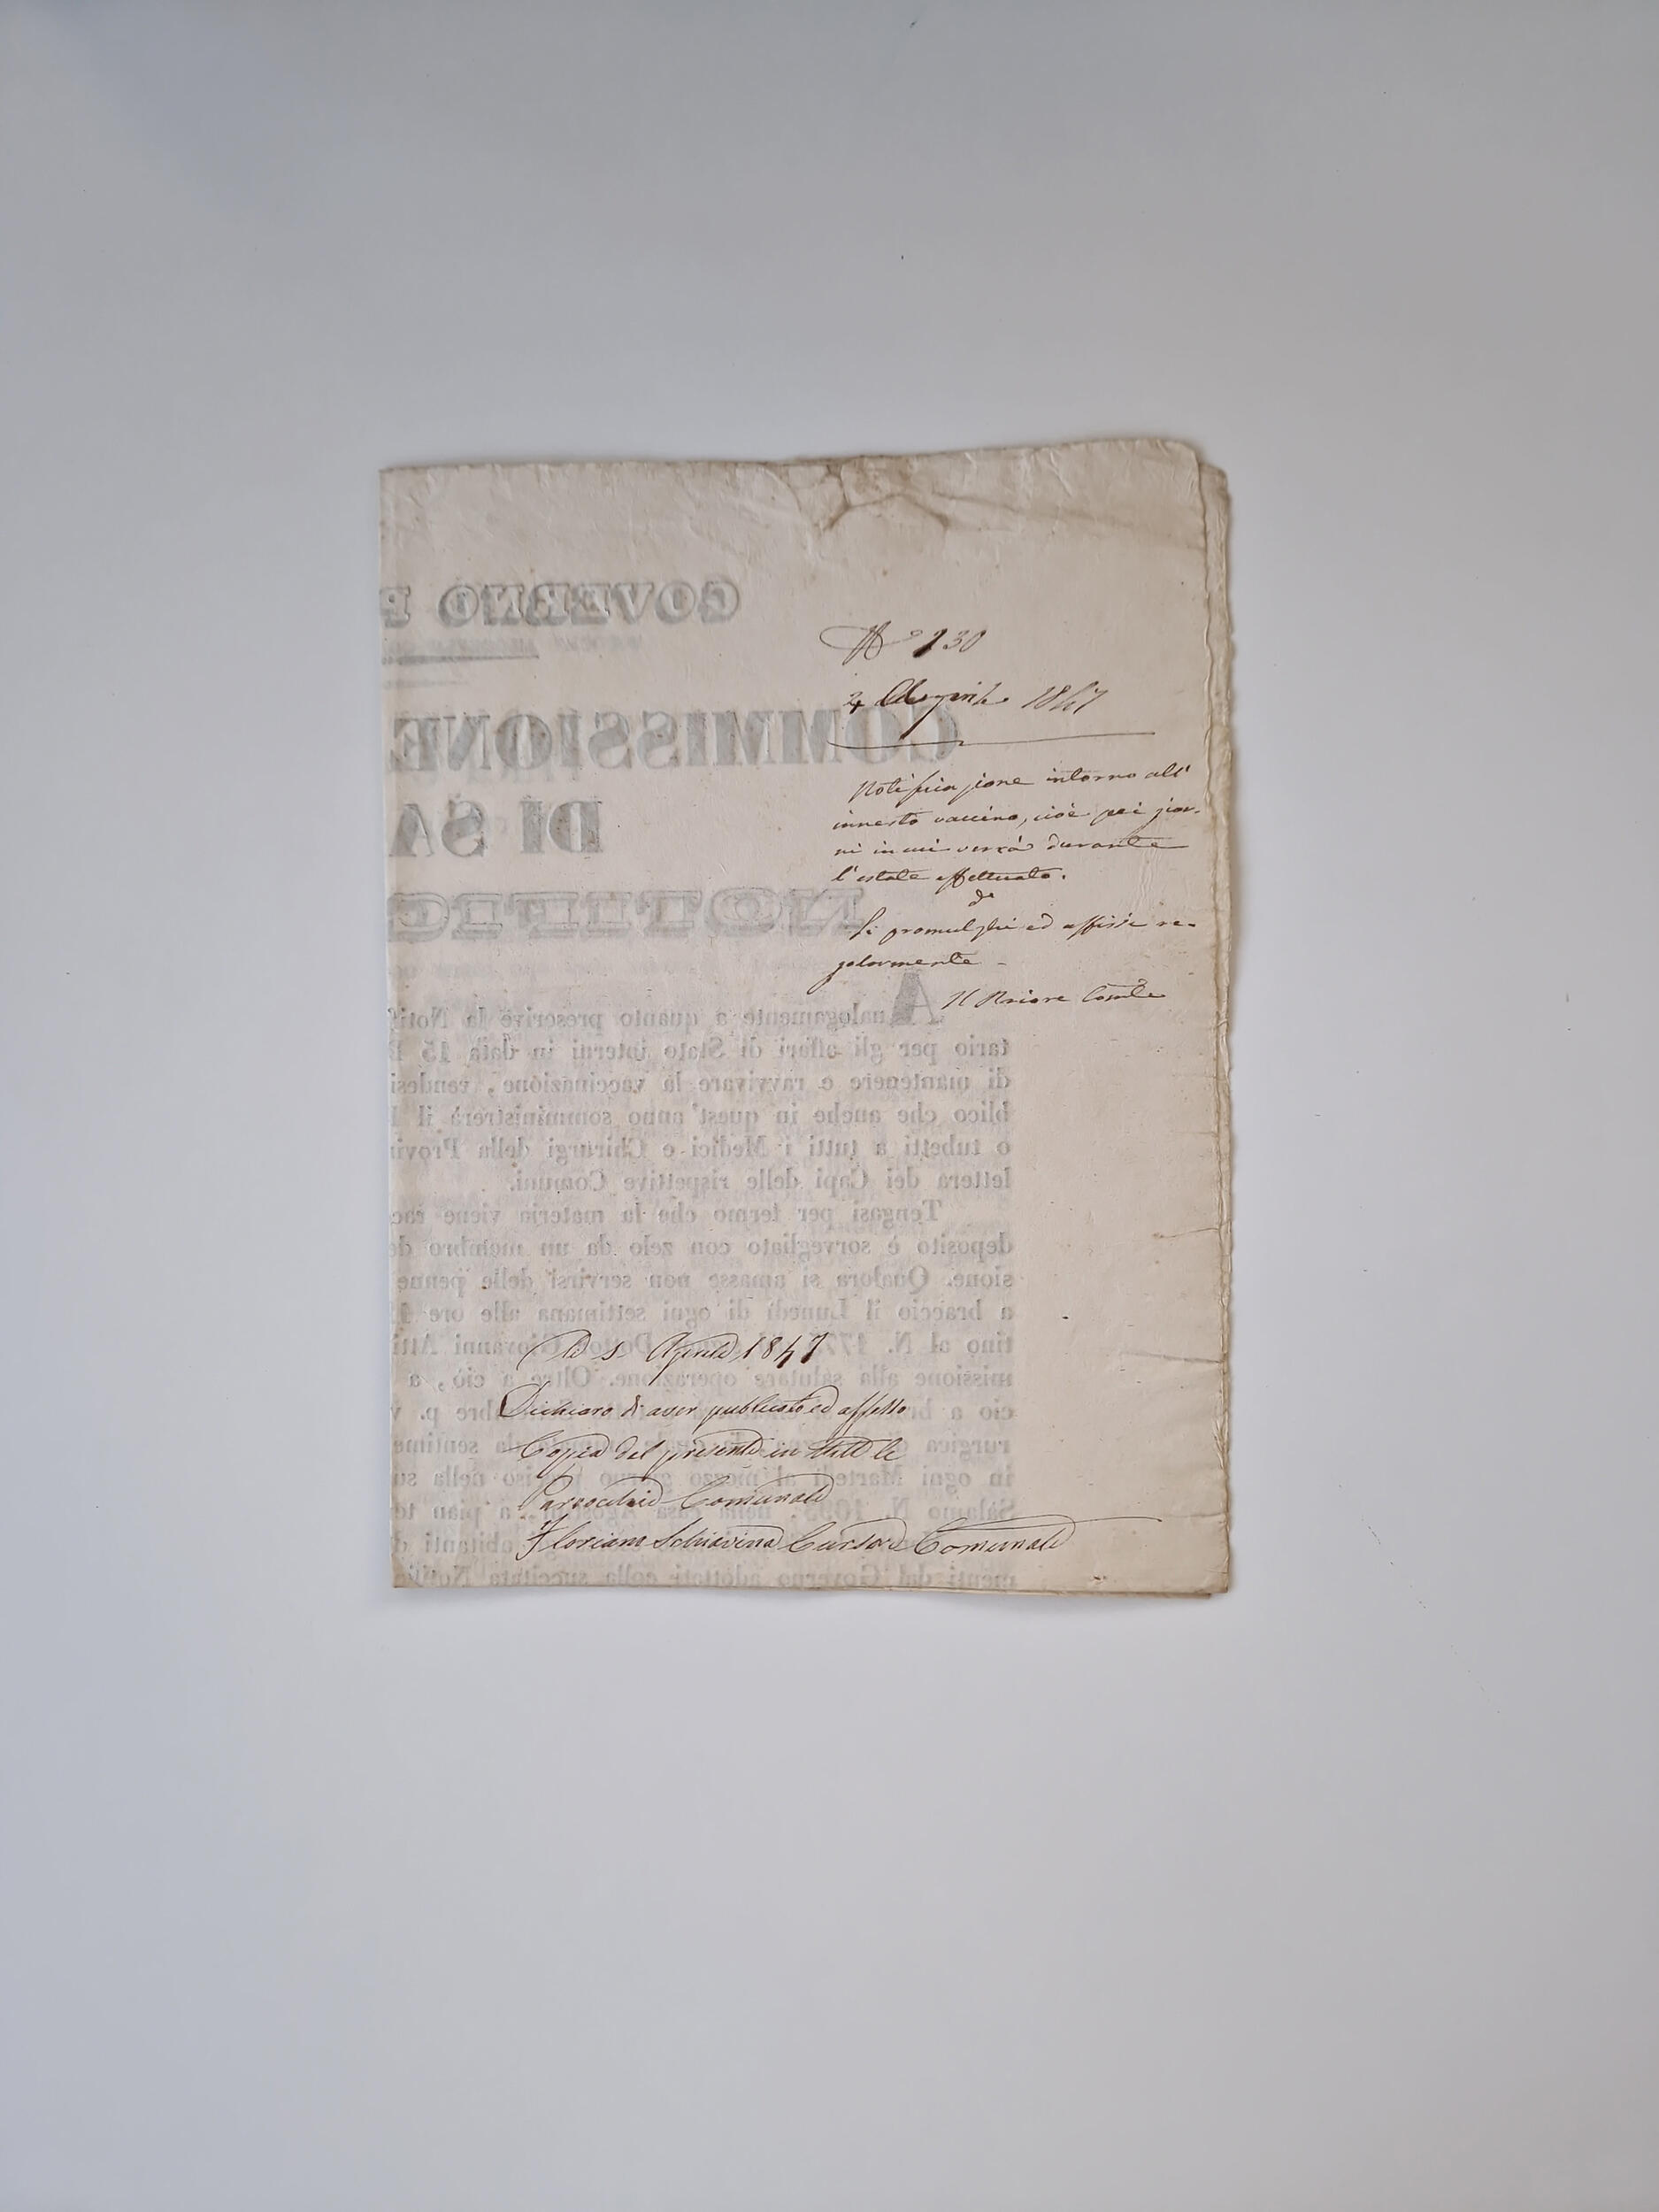 GOVERNO P
N.° 130
2 Aprile 1847
COMMISSIONE
Notificazione intorno all'
innesto vaccino, cioè pei gior-
ni in cui verrà durante
l'estate effettuato.
DI SA
NOTIFIC
Si promulghi ed affissi re-
golarmente -
Il Priore Comle
Analogamente a quanto prescrive la Notif
tario per gli affari di Stato interni in data 15
di mantenere e ravvivare la vaccinazione, rendesi
blico che anche in quest'anno somministrerà il
o tubetti a tutti i Medici e Chirurgi della Provi
lettera dei Capi delle rispettive Comuni.
Tengasi per fermo che la materia viene rac
deposito è sorvegliato con zelo da un membro de
sione. Qualora si amasse non servirsi delle penne
a braccio il Lunedì di ogni settimana alle ore
tino al N. 177 Dottor Giovanni Atti
missione alla salutare operazione. Oltre a ciò, a
cio a br bre p. v
rurgica sentime
in ogni Martedì al mezzo giorno preciso nella su
Salamo N. nella Casa Agostini a pian te
abituati d
menti dal Governo adottati colla succitata Notific
Li 5 Aprile 1847
Dichiaro di aver publicato ed affesso
Copia del presente in tutte le
Parocchie Comunale
Floriano Schiavina Cursore Comunale